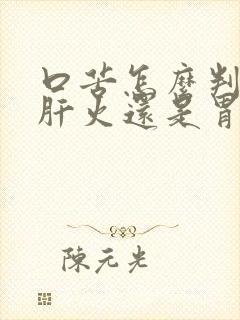 口苦怎麼判
肝火還是胃
陳元光